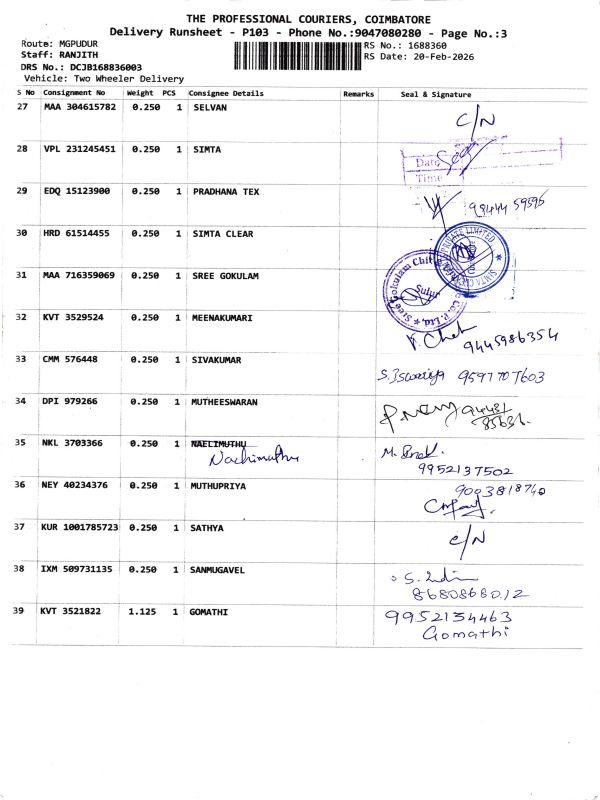 THE PROFESSIONAL COURIERS, COIMBATORE
Delivery Runsheet - P103 - Phone No.:9047080280 - Page No.:3
Route: MGPUDUR
RS No.: 1688360
Staff: RANJITH
RS Date: 20-Feb-2026
DRS No.: DCJB168836003
Vehicle: Two Wheeler Delivery
S No Consignment No Weight PCS Consignee Details Remarks Seal & Signature
27 MAA 304615782 0.250 1 SELVAN C/N
28 VPL 231245451 0.250 1 SIMTA
Date
Time
29 EDQ 15123900 0.250 1 PRADHANA TEX 99444 59596
30 HRD 61514455 0.250 1 SIMTA CLEAR
PRIVATE LIMITED
31 MAA 716359069 0.250 1 SREE GOKULAM
Sree Gokulam Chit Co. P. Ltd.
Sulur
32 KVT 3529524 0.250 1 MEENAKUMARI
9445986354
33 CMM 576448 0.250 1 SIVAKUMAR
S. Iswariya 9597707603
34 DPI 979266 0.250 1 MUTHEESWARAN
94431
85636.
35 NKL 3703366 0.250 1 NAELIMUTHU
Nachimuthu
9952137502
36 NEY 40234376 0.250 1 MUTHUPRIYA
9003818740
37 KUR 1001785723 0.250 1 SATHYA C/N
38 IXM 509731135 0.250 1 SANMUGAVEL
8680868012
39 KVT 3521822 1.125 1 GOMATHI 9952154463
Gomathi